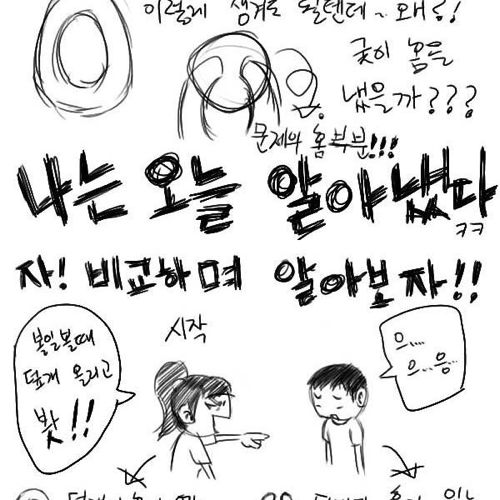 이렇게 생겨도 될텐데~ 왜?!
굳이 홈을
냈을까???
문제의 홈 부분!!!
나는 오늘 알아냈다
ㅋㅋ
자! 비교하며 알아보자!!
시작
볼일볼때
덮개 올리고
봣!!
으....
으...응...